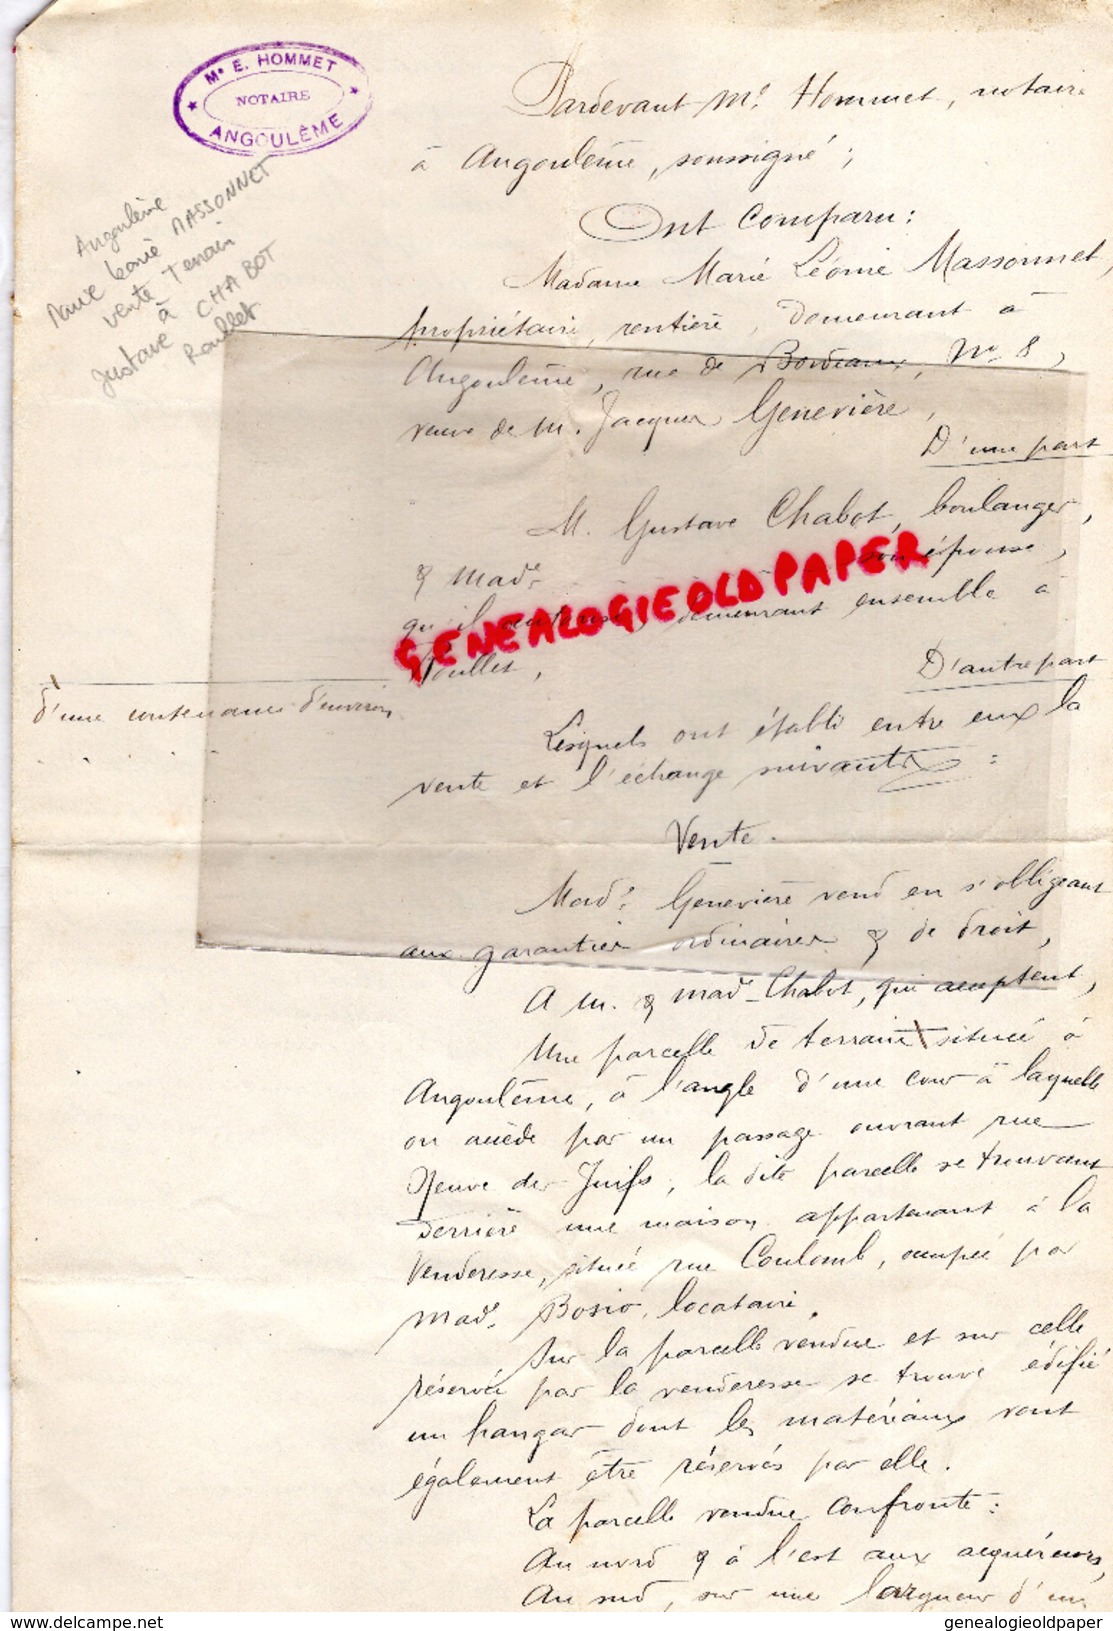 Me E. HOMMET
NOTAIRE
ANGOULÊME
Angoulême
Marie Léonie MASSONNET
vente Terrain
à
Gustave CHABOT
Roullet
Pardevant Me Hommet, notaire
à Angoulême, soussigné ;
Ont Comparu :
Madame Marie Léonie Massonnet,
propriétaire, rentière, demeurant à
Angoulême, rue de Bordeaux, No 8,
veuve de M. Jacques Genevière,
D'une part
M. Gustave Chabot, boulanger,
& Made son épouse,
qu'il autorise, demeurant ensemble à
Roullet,
D'autre part
GENEALOGIEOLDPAPER
d'une contenance d'environ
Lesquels ont établi entre eux la
vente et l'échange suivants :
Vente.
Made Genevière vend en s'obligeant
aux garanties ordinaires & de droit,
A M. & Made Chabot, qui acceptent,
Une parcelle de terrain située à
Angoulême, à l'angle d'une cour à laquelle
on accède par un passage ouvrant rue
Neuve des Juifs, la dite parcelle se trouvant
derrière une maison appartenant à la
Venderesse, située rue Coulomb, occupée par
Made Bosio, locataire.
Sur la parcelle vendue et sur celle
réservée par la venderesse se trouve édifié
un hangar dont les matériaux sont
également être réservés par elle.
La parcelle vendue confronte :
Au nord & à l'est aux acquéreurs,
Au sud, sur une largeur d'un
genealogieoldpaper